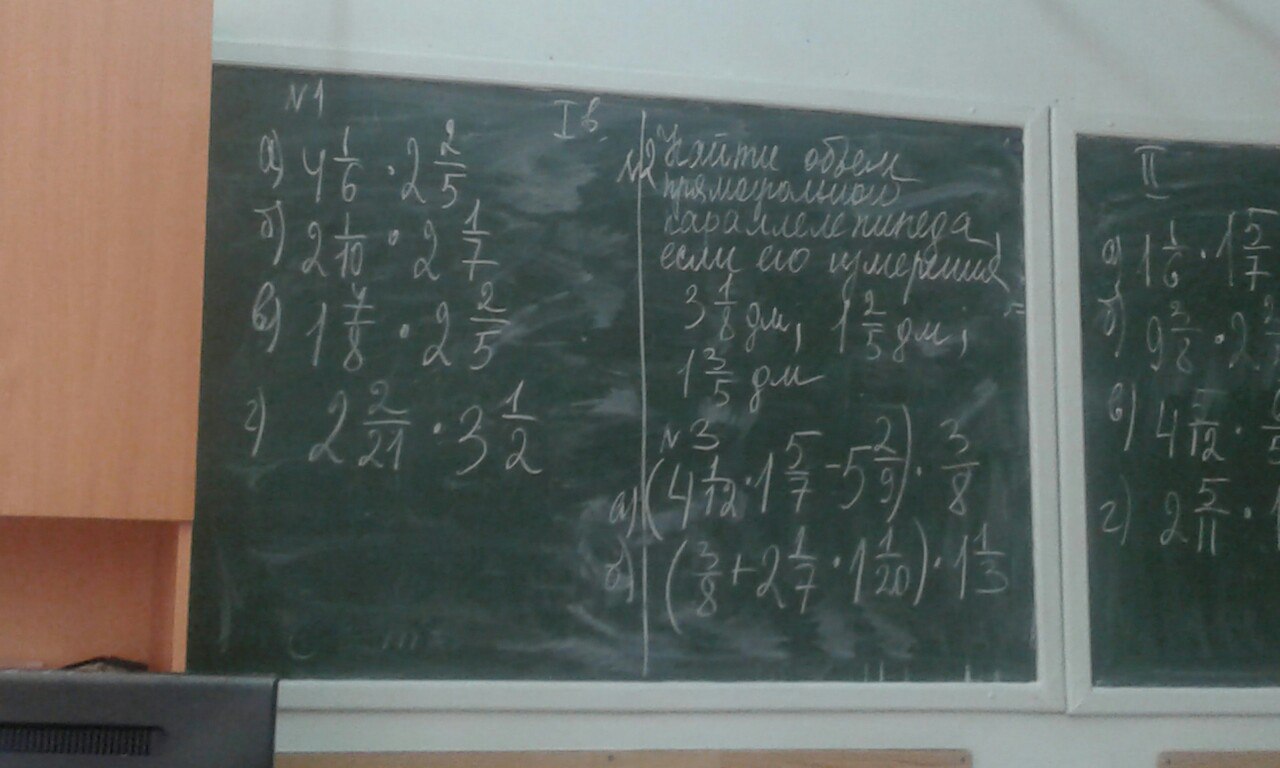 N1
Iв.
а) 4 1/6 · 2 2/5
б) 2 1/10 · 2 1/7
в) 1 7/8 · 2 2/5
г) 2 2/21 · 3 1/2
N2 Найти объем
прямоугольного
параллелепипеда,
если его измерения
3 1/8 дм; 1 2/5 дм;
1 3/5 дм
N 3
а) (4 1/12 · 1 5/7 - 5 2/9) · 3/8
б) (3/8 + 2 1/7 · 1 1/20) · 1 1/3
II
а) 1 1/6 · 1 5/7
б) 9 3/8 · 2
в) 4 · 
г) 2 5/11 · 1